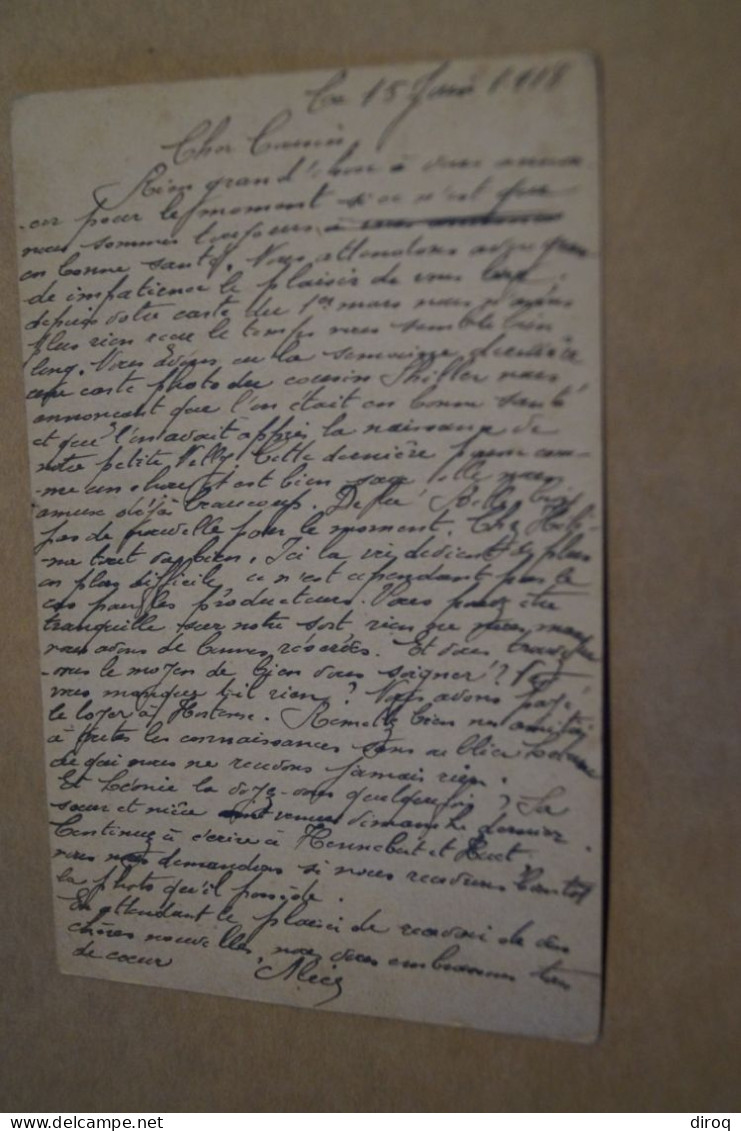 Le 15 Juin 1918
Cher Cousin,
Rien grand'chose à vous annon-
-cer pour le moment si ce n'est que
nous sommes toujours
en bonne santé. Nous attendons avec
de impatience le plaisir de vous
depuis votre carte du 1er mars nous n'avons
plus rien et le temps nous semble bien
long. Nous avons eu la semaine dernière
une carte photo du cousin nous
annonçant que l'on était en bonne santé
et que l'on avait appris la naissance de
notre petite Nelly. Cette dernière pousse com-
-me un chou et est bien sage elle nous
amuse déjà beaucoup. De
pas de nouvelle pour le moment. Chez
-ne tout va bien. Ici la vie devient de plus
en plus difficile ce n'est cependant pas le
cas pour les producteurs. Vous pouvez être
tranquille sur notre sort rien ne nous manque
nous avons de bonnes réserves. Et vous
-vous le moyen de bien vous soigner ? Ne
vous manque t-il rien ? Nous avons payé
le loyer à Hortense. Remettez bien nos amitiés
à toutes les connaissances sans oublier
de qui nous ne recevons jamais rien.
Et Léonie la voyez-vous quelquefois ? Sa
sœur et nièce sont venues dimanche dernier.
Continuez à écrire à Hennebert et Huet.
vous nous demandons si nous recevrons bientôt
la photo qu'il possède.
En attendant le plaisir de recevoir de vos
chères nouvelles, nous vous embrassons tous
de cœur Alice